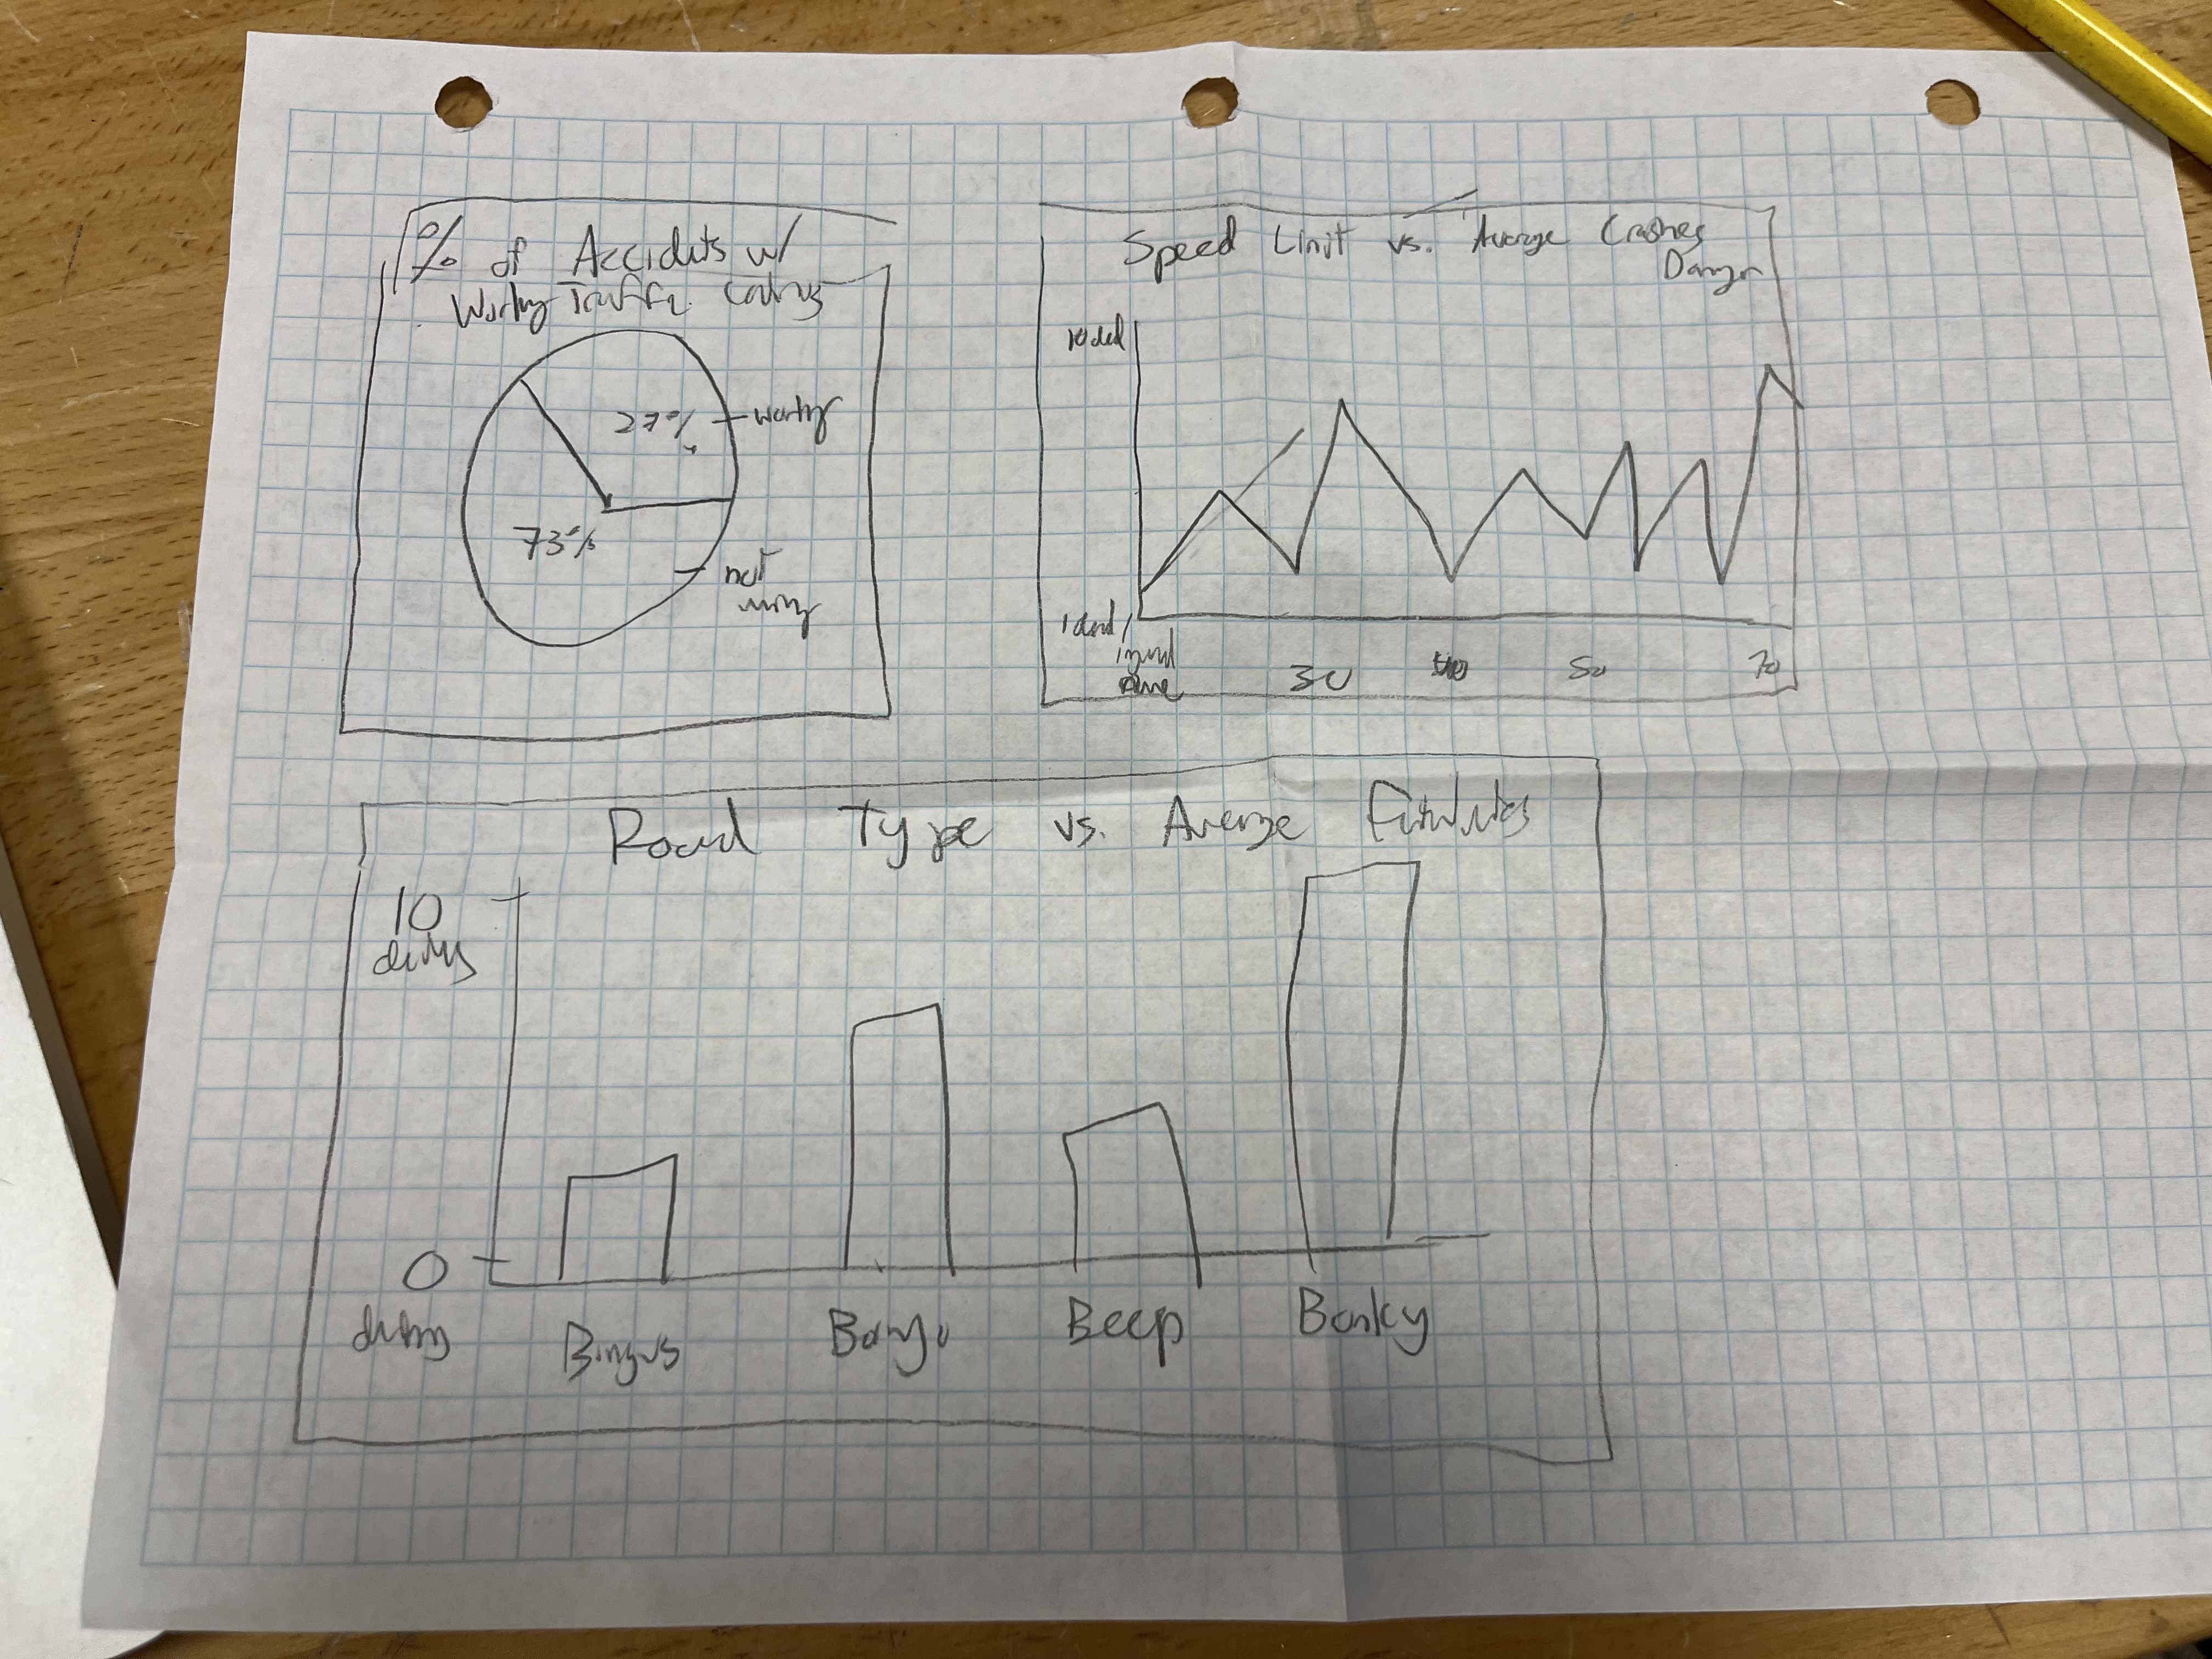 % of Accidents w/
Working Traffic
27%
working
73%
not
Speed Limit vs. Average Crashes
Danger
10 dead
1 dead /
30
40
50
70
Road Type vs. Average Fatalities
10
deaths
0
deaths
Bingus
Bongo
Beep
Bonky